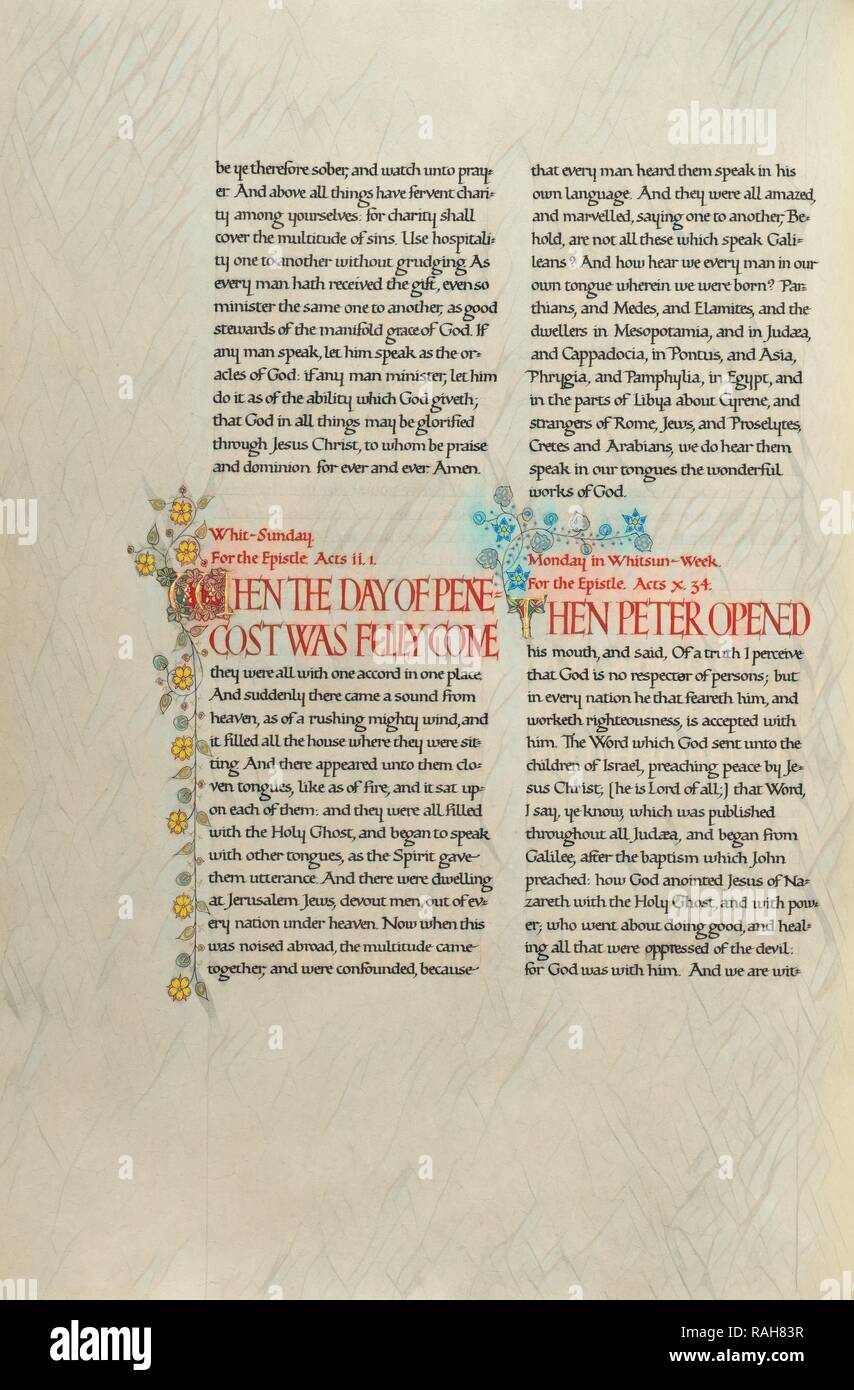 be ye therefore sober, and watch unto pray-
er. And above all things have fervent chari-
ty among yourselves: for charity shall
cover the multitude of sins. Use hospitali-
ty one to another without grudging. As
every man hath received the gift, even so
minister the same one to another, as good
stewards of the manifold grace of God. If
any man speak, let him speak as the or-
acles of God: if any man minister, let him
do it as of the ability which God giveth;
that God in all things may be glorified
through Jesus Christ, to whom be praise
and dominion for ever and ever. Amen.
Whit-Sunday.
For the Epistle. Acts ii. 1.
WHEN THE DAY OF PENE-
COST WAS FULLY COME
they were all with one accord in one place.
And suddenly there came a sound from
heaven, as of a rushing mighty wind, and
it filled all the house where they were sit-
ting. And there appeared unto them clo-
ven tongues, like as of fire, and it sat up-
on each of them: and they were all filled
with the Holy Ghost, and began to speak
with other tongues, as the Spirit gave
them utterance. And there were dwelling
at Jerusalem Jews, devout men, out of ev-
ery nation under heaven. Now when this
was noised abroad, the multitude came
together, and were confounded, because
that every man heard them speak in his
own language. And they were all amazed,
and marvelled, saying one to another, Be-
hold, are not all these which speak Gali-
leans? And how hear we every man in our
own tongue wherein we were born? Par-
thians, and Medes, and Elamites, and the
dwellers in Mesopotamia, and in Judæa,
and Cappadocia, in Pontus, and Asia,
Phrygia, and Pamphylia, in Egypt, and
in the parts of Libya about Cyrene, and
strangers of Rome, Jews, and Proselytes,
Cretes and Arabians, we do hear them
speak in our tongues the wonderful
works of God.
Monday in Whitsun-Week.
For the Epistle. Acts x. 34.
THEN PETER OPENED
his mouth, and said, Of a truth I perceive
that God is no respecter of persons; but
in every nation he that feareth him, and
worketh righteousness, is accepted with
him. The Word which God sent unto the
children of Israel, preaching peace by Je-
sus Christ; [he is Lord of all;] that Word,
I say, ye know, which was published
throughout all Judæa, and began from
Galilee, after the baptism which John
preached: how God anointed Jesus of Na-
zareth with the Holy Ghost, and with pow-
er; who went about doing good, and heal-
ing all that were oppressed of the devil:
for God was with him. And we are wit-
alamy
Image ID: RAH83R
www.alamy.com